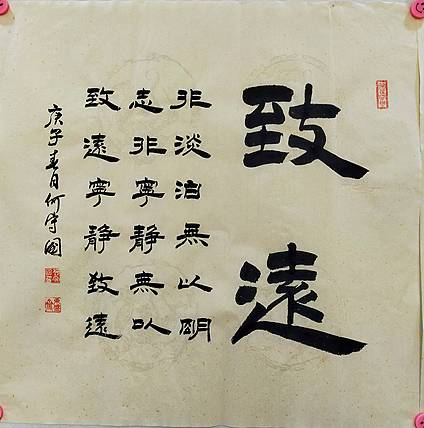 致遠
非淡泊無以明
志非寧静無以
致遠寧静致遠
庚子春日何國